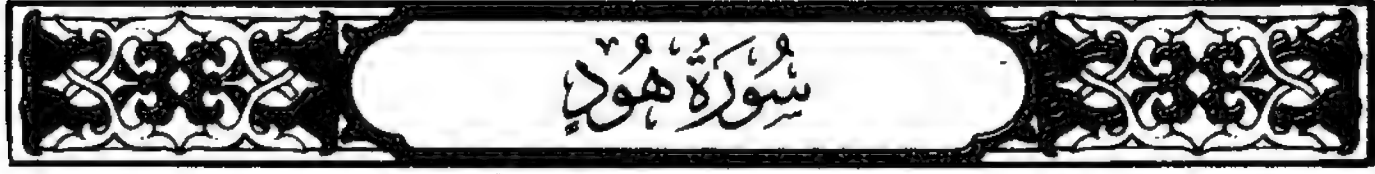 سُورَةُ هُودٍ